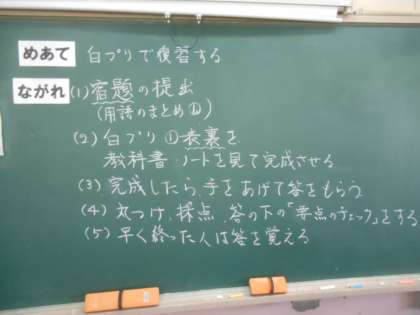 めあて 白プリで復習する
ながれ (1) 宿題の提出
(用語のまとめ②)
(2) 白プリ①表裏を
教科書・ノートを見て完成させる
(3) 完成したら、手をあげて答をもらう
(4) 丸つけ、採点、答の下の「要点のチェック」をする
(5) 早く終った人は答を覚える